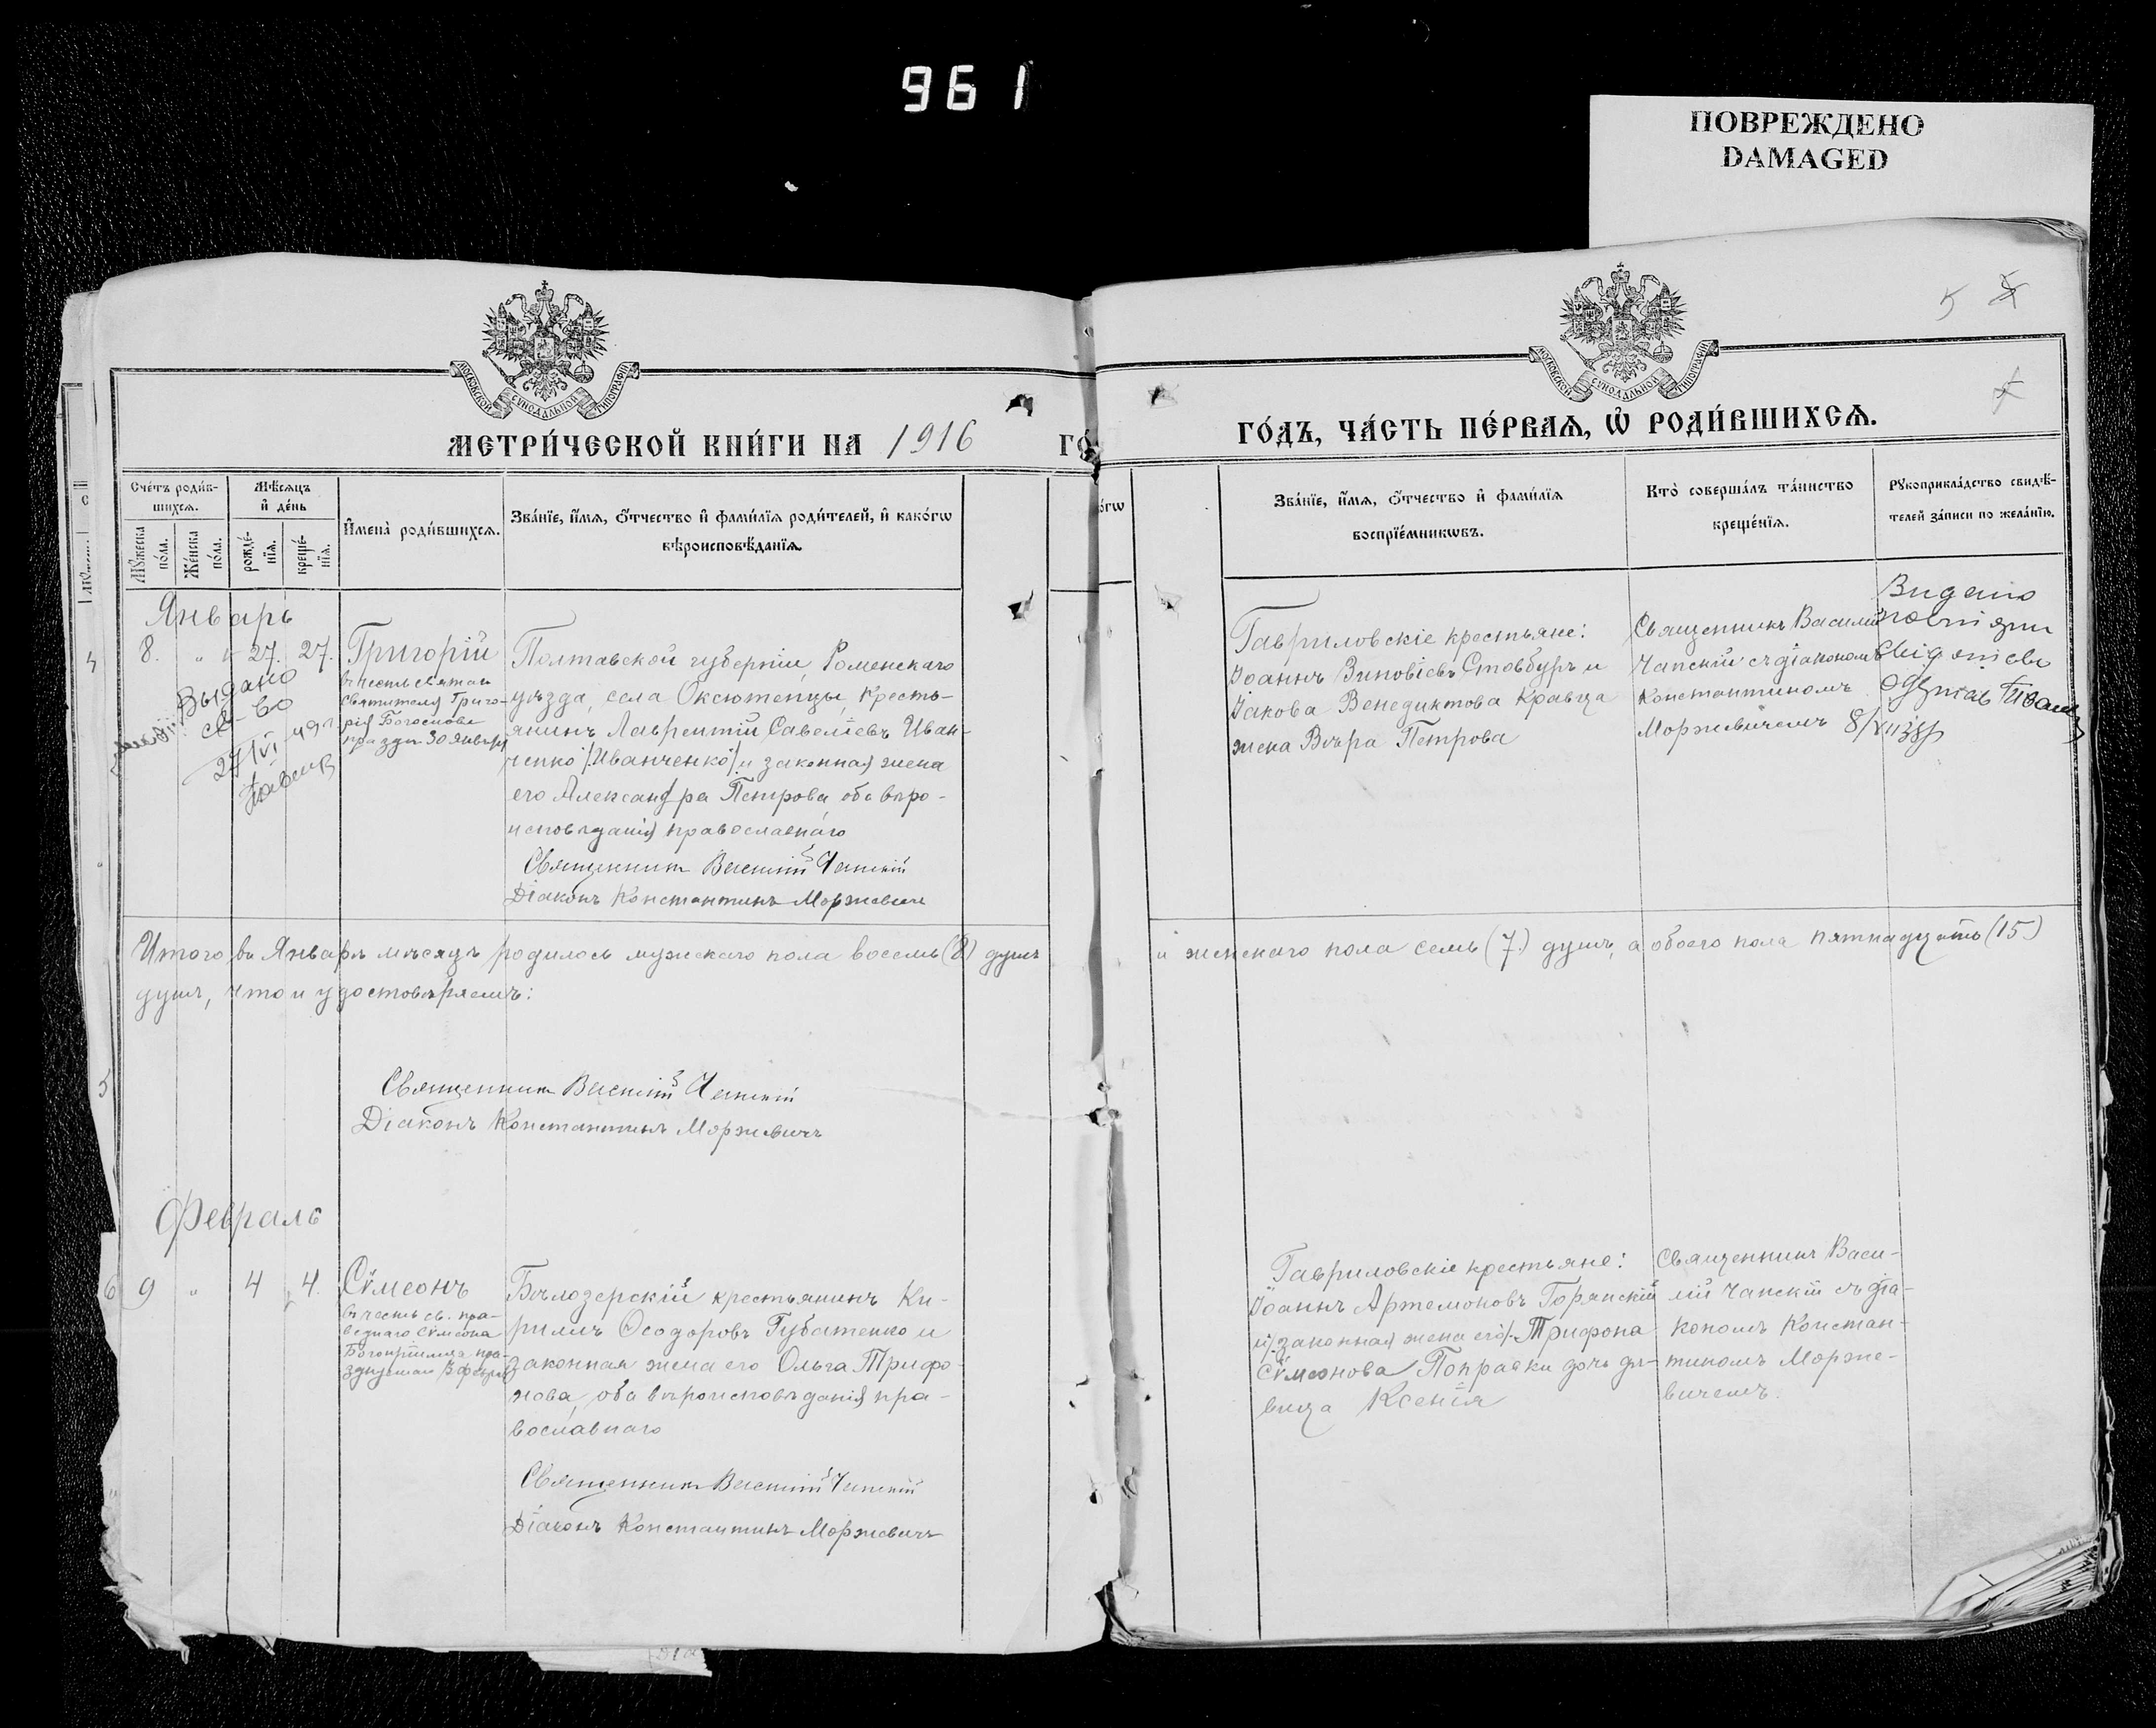 961
ПОВРЕЖДЕНО
DAMAGED
5
МОСКОВСКОЙ СУНОДАЛЬНОЙ ТИПОГРАФІИ
МОСКОВСКОЙ СУНОДАЛЬНОЙ ТИПОГРАФІИ
МЕТРИ́ЧЕСКОЙ КНИ́ГИ НА 1916 ГО́
ГО́ДЪ, ЧА́СТЬ ПЕ́РВАѦ, Ѡ҆ РОДИ́ВШИХСѦ.
Сче́тъ роди́в-
шихсѧ.
Мѣ́сѧцъ
и҆ де́нь
Мꙋ́жеска по́ла.
Же́нска по́ла.
рожде́-
нїѧ.
креще́-
нїѧ.
И҆мена̀ роди́вшихсѧ.
Зва́нїе, и҆́мѧ, ѻ҆́тчество и҆ фами́лїѧ роди́телей, и҆ како́гѡ
вѣроисповѣ́данїѧ.
о́гѡ
Зва́нїе, и҆́мѧ, ѻ҆́тчество и҆ фами́лїѧ
воспрїе́мникѡвъ.
Кто̀ соверша́лъ та́инство
креще́нїѧ.
Рꙋкоприкла́дство свидѣ́-
телей за́писи по жела́нїю.
Январь
8. " 27. 27.
Выдано
св-во
27/VI 49 г
Григорій
въ честь святаго
Святителя Григо-
рія Богослова
праздн 30 Января
Полтавской губерніи, Роменскаго
уѣзда, села Оксютенцы, кресть-
янинъ Лаврентій Савеліевъ Иван-
ченко /:Иванченко:/ и законная жена
его Александра Петрова оба вѣро-
исповѣданія православнаго
Священникъ Василій Чапскій
Діаконъ Константинъ Моржевичъ
Гавриловскіе крестьяне:
Іоаннъ Зиновіевъ Стовбуръ и
Іакова Венедиктова Кравца
жена Вѣра Петрова
Священникъ Василій
Чапскій съ діакономъ
Константиномъ
Моржевичемъ
Видано
8/VII 38 р
Итого въ Январѣ мѣсяцѣ родилось мужскаго пола восемь (8) душъ
и женскаго пола семь (7.) душъ, а обоего пола пятнадцать (15.)
душъ, что и удостовѣряемъ:
Священникъ Василій Чапскій
Діаконъ Константинъ Моржевичъ
Февраль
9 " 4 4.
Сѵмеонъ
въ честь св. пра-
веднаго Сѵмеона
Богопріимца пра-
зднуемаго 3 февраля
Бѣлозерскій крестьянинъ Ки-
риллъ Ѳеодоровъ Губатенко и
законная жена его Ольга Трифо-
нова, оба вѣроисповѣданія пра-
вославнаго
Священникъ Василій Чапскій
Діаконъ Константинъ Моржевичъ
Гавриловскіе крестьяне:
Іоаннъ Артемоновъ Горянскій
и /: законная жена его /: Трифона
Сѵмеонова Поправки дочь дѣ-
вица Ксенія
Священникъ Васи-
лій Чапскій съ діа-
кономъ Констан-
тиномъ Морже-
вичемъ.